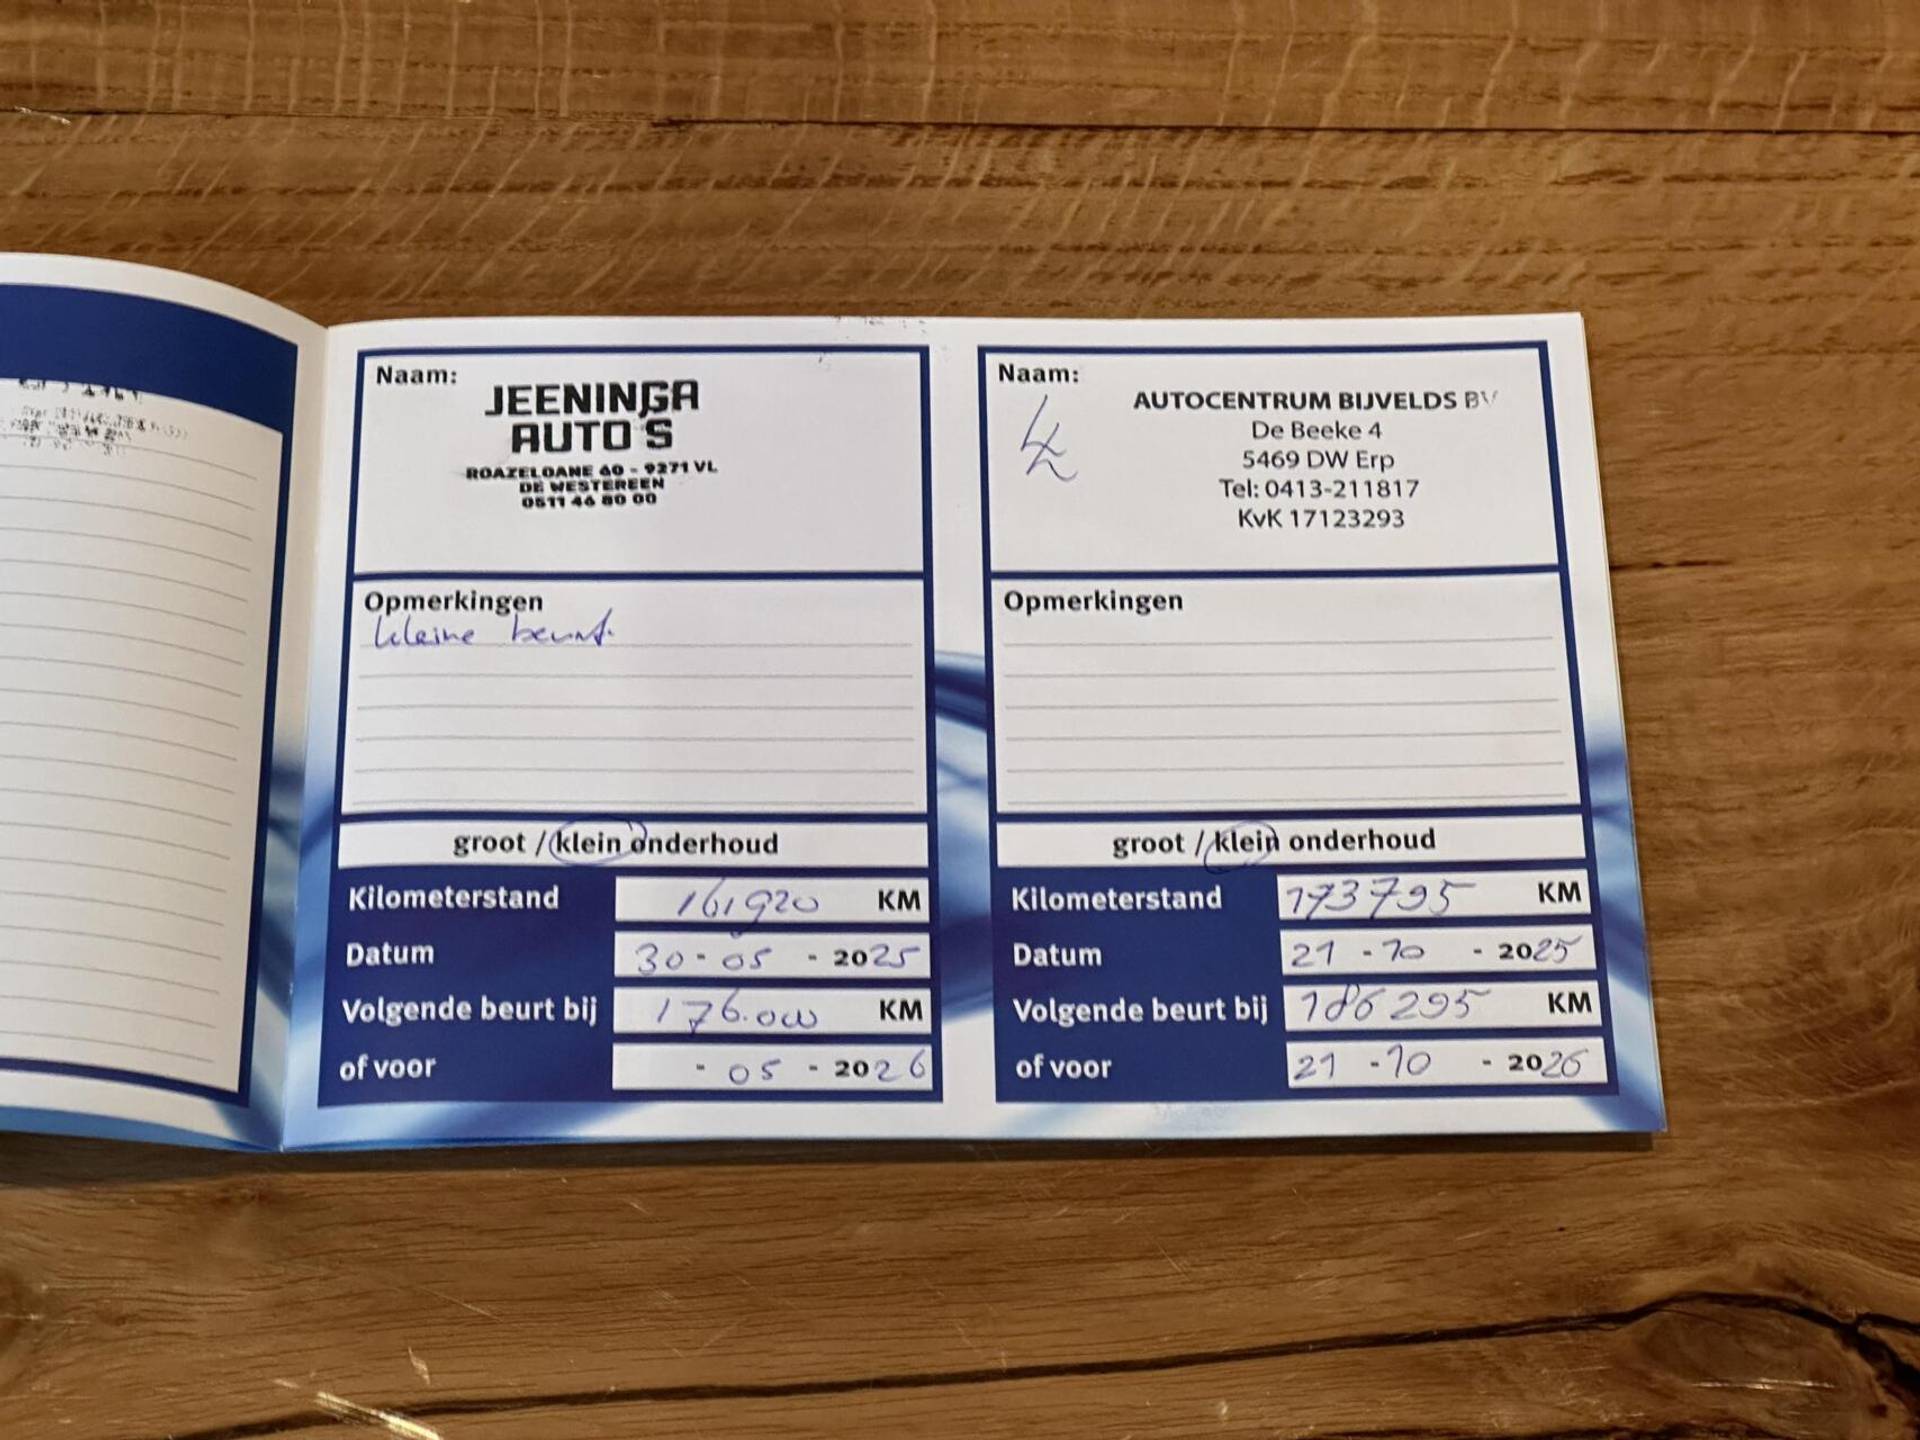 Naam:
JEENINGA
AUTO'S
ROAZELOANE 60 - 9271 VL
DE WESTEREEN
0511 46 80 00
Opmerkingen
kleine beurt.
groot / klein onderhoud
Kilometerstand 161920 KM
Datum 30 - 05 - 2025
Volgende beurt bij 176.000 KM
of voor - 05 - 2026
Naam:
AUTOCENTRUM BIJVELDS BV
De Beeke 4
5469 DW Erp
Tel: 0413-211817
KvK 17123293
Opmerkingen
groot / klein onderhoud
Kilometerstand 173795 KM
Datum 21 - 10 - 2025
Volgende beurt bij 186295 KM
of voor 21 - 10 - 2026